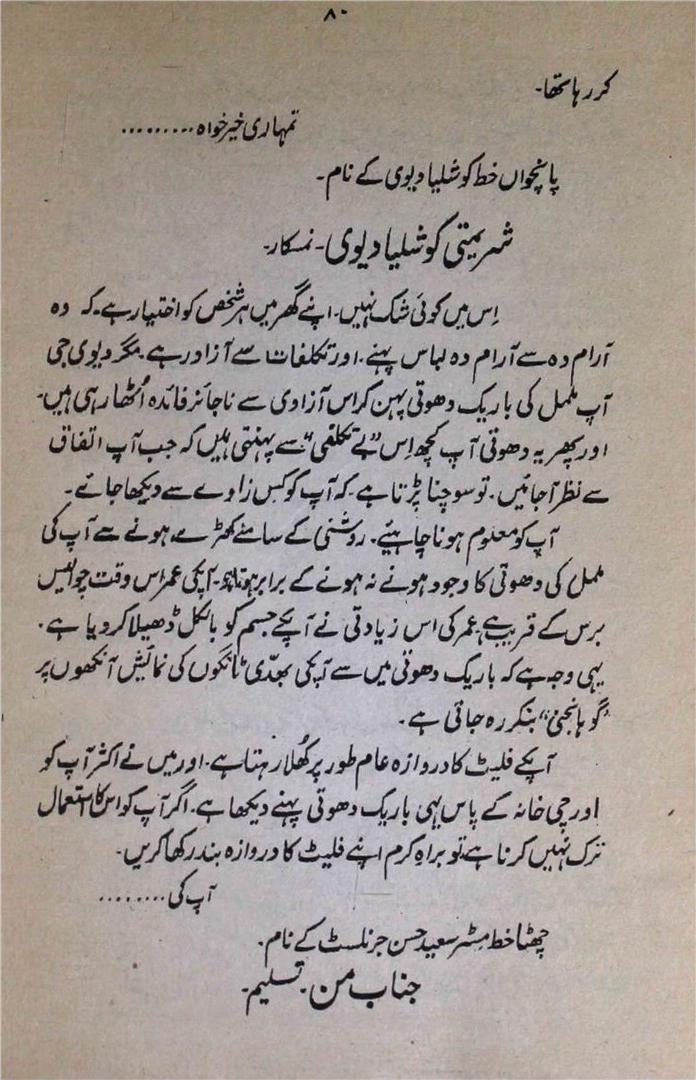 ۸۰
کر رہا تھا۔
تمہاری خیرخواہ .........
پانچواں خط کوشلیا دیوی کے نام۔
شریمتی کوشلیا دیوی۔ نمسکار۔
اِس میں کوئی شک نہیں۔ اپنے گھر میں ہر شخص کو اختیار ہے۔ کہ وہ
آرام دہ سے آرام دہ لباس پہنے۔ اور تکلفات سے آزاد رہے۔ مگر دیوی جی
آپ ململ کی باریک دھوتی پہن کر اس آزادی سے ناجائز فائدہ اُٹھا رہی ہیں۔
اور پھر یہ دھوتی آپ کچھ اِس "بے تکلفی" سے پہنتی ہیں کہ جب آپ اتفاق
سے نظر آ جائیں۔ تو سوچنا پڑتا ہے۔ کہ آپ کو کِس زاوے سے دیکھا جائے۔
آپ کو معلوم ہونا چاہیئے۔ روشنی کے سامنے کھڑے ہونے سے آپ کی
ململ کی دھوتی کا وجود ہونے نہ ہونے کے برابر ہوتا ہے۔ آپکی عمر اس وقت چوالیس
برس کے قریب ہے، عمر کی اس زیادتی نے آپکے جسم کو بالکل ڈھیلا کر دیا ہے۔
یہی وجہ ہے کہ باریک دھوتی میں سے آپکی بھدّی ٹانگوں کی نمائش آنکھوں پر
"گوہانجنی" بنکر رہ جاتی ہے۔
آپکے فلیٹ کا دروازہ عام طور پر کُھلا رہتا ہے۔ اور میں نے اکثر آپ کو
باورچی خانہ کے پاس یہی باریک دھوتی پہنے دیکھا ہے۔ اگر آپ کو اس کا استعمال
ترک نہیں کرنا ہے تو براہِ کرم اپنے فلیٹ کا دروازہ بند رکھا کریں۔
آپ کی ........
چھٹا خط مسٹر سعید حسن جرنلسٹ کے نام۔
جناب من۔ تسلیم۔